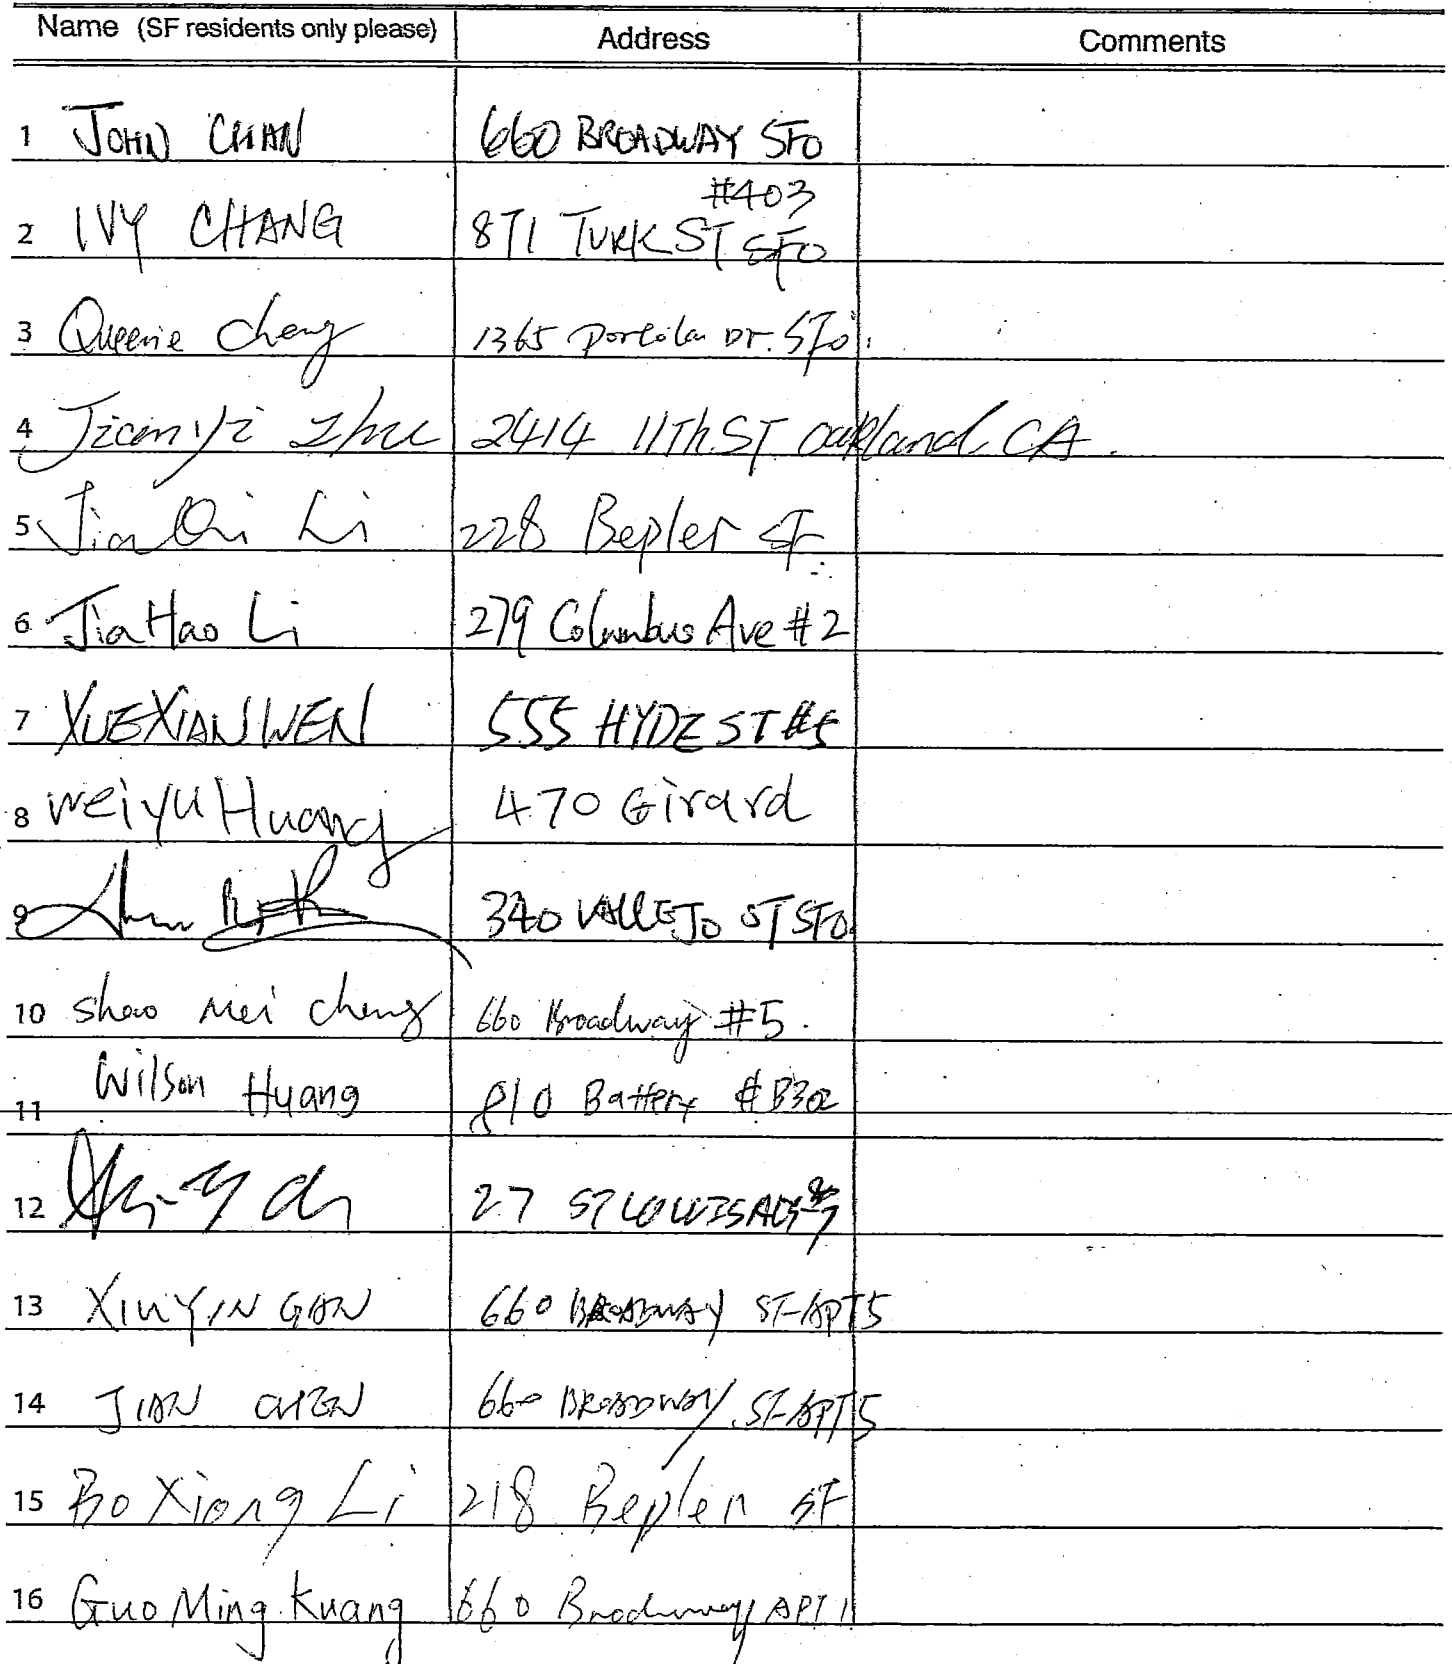 Name (SF residents only please) Address Comments
1 JOHN CHAN 660 BROADWAY SFO
#403
2 IVY CHANG 871 TURK ST SFO
3 Queenie Cheng 1365 Portola Dr. SFO
4 Jianyi Zhu 2414 11Th ST Oakland CA.
5 Jia Qi Li 228 Bepler SF
6 Jia Hao Li 279 Columbus Ave #2
7 XUE XIAN WEN 555 HYDE ST #5
8 Weiyu Huang 470 Girard
9 340 VALLEJO ST SFO
10 Shao Mei Cheng 660 Broadway #5.
11 Wilson Huang 810 Battery #B302
12 27 ST LOUIS
13 XIUYIN GAN 660 BROADWAY ST APT 5
14 JIAN CHEN 660 BROADWAY ST APT 5
15 Bo Xiong Li 218 Bepler SF
16 Guo Ming Kuang 660 Broadway APT 1